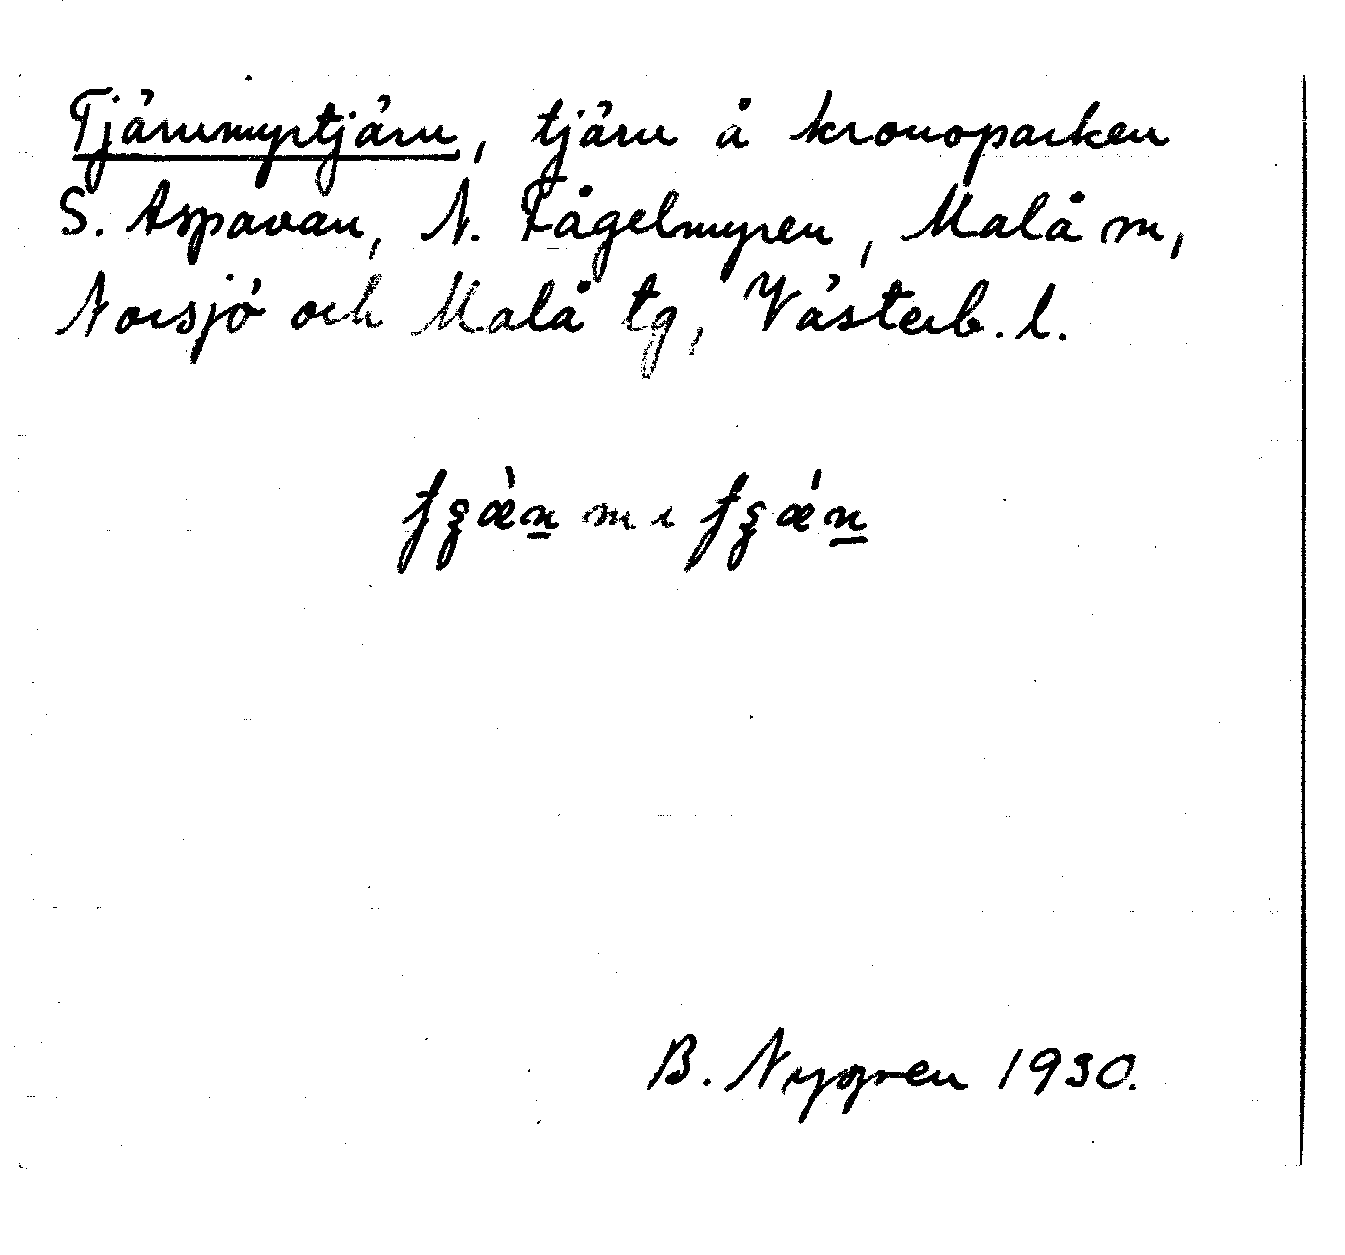 Tjärnmyrtjärn, tjärn å kronoparken
S. Aspavan, N. Fågelmyren, Malå sn,
Norsjö och Malå tg, Västerb. l.
B. Nygren 1930.